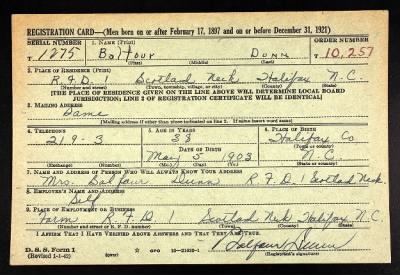 REGISTRATION CARD—(Men born on or after February 17, 1897 and on or before December 31, 1921)
SERIAL NUMBER 1. NAME (Print) ORDER NUMBER
T 1275 Balfour Dunn T 10,257
(First) (Middle) (Last)
2. PLACE OF RESIDENCE (Print)
R.F.D. 1 Scotland Neck Halifax N.C.
(Number and street) (Town, township, village, or city) (County) (State)
[THE PLACE OF RESIDENCE GIVEN ON THE LINE ABOVE WILL DETERMINE LOCAL BOARD
JURISDICTION; LINE 2 OF REGISTRATION CERTIFICATE WILL BE IDENTICAL]
3. MAILING ADDRESS
Same
[Mailing address if other than place indicated on line 2. If same insert word same]
4. TELEPHONE 5. AGE IN YEARS 6. PLACE OF BIRTH
219-3 38 Halifax Co
DATE OF BIRTH (Town or county)
May 5 1903 N.C.
(Exchange) (Number) (Mo.) (Day) (Yr.) (State or country)
7. NAME AND ADDRESS OF PERSON WHO WILL ALWAYS KNOW YOUR ADDRESS
Mrs. Balfour Dunn R.F.D. 1 Scotland Neck
8. EMPLOYER'S NAME AND ADDRESS
Self
9. PLACE OF EMPLOYMENT OR BUSINESS
Farm R.F.D. 1 Scotland Neck Halifax N.C.
(Number and street or R. F. D. number) (Town) (County) (State)
I AFFIRM THAT I HAVE VERIFIED ABOVE ANSWERS AND THAT THEY ARE TRUE.
D. S. S. Form 1 GPO 16—21630-1 Balfour Dunn
(Revised 1-1-42) (over) (Registrant's signature)